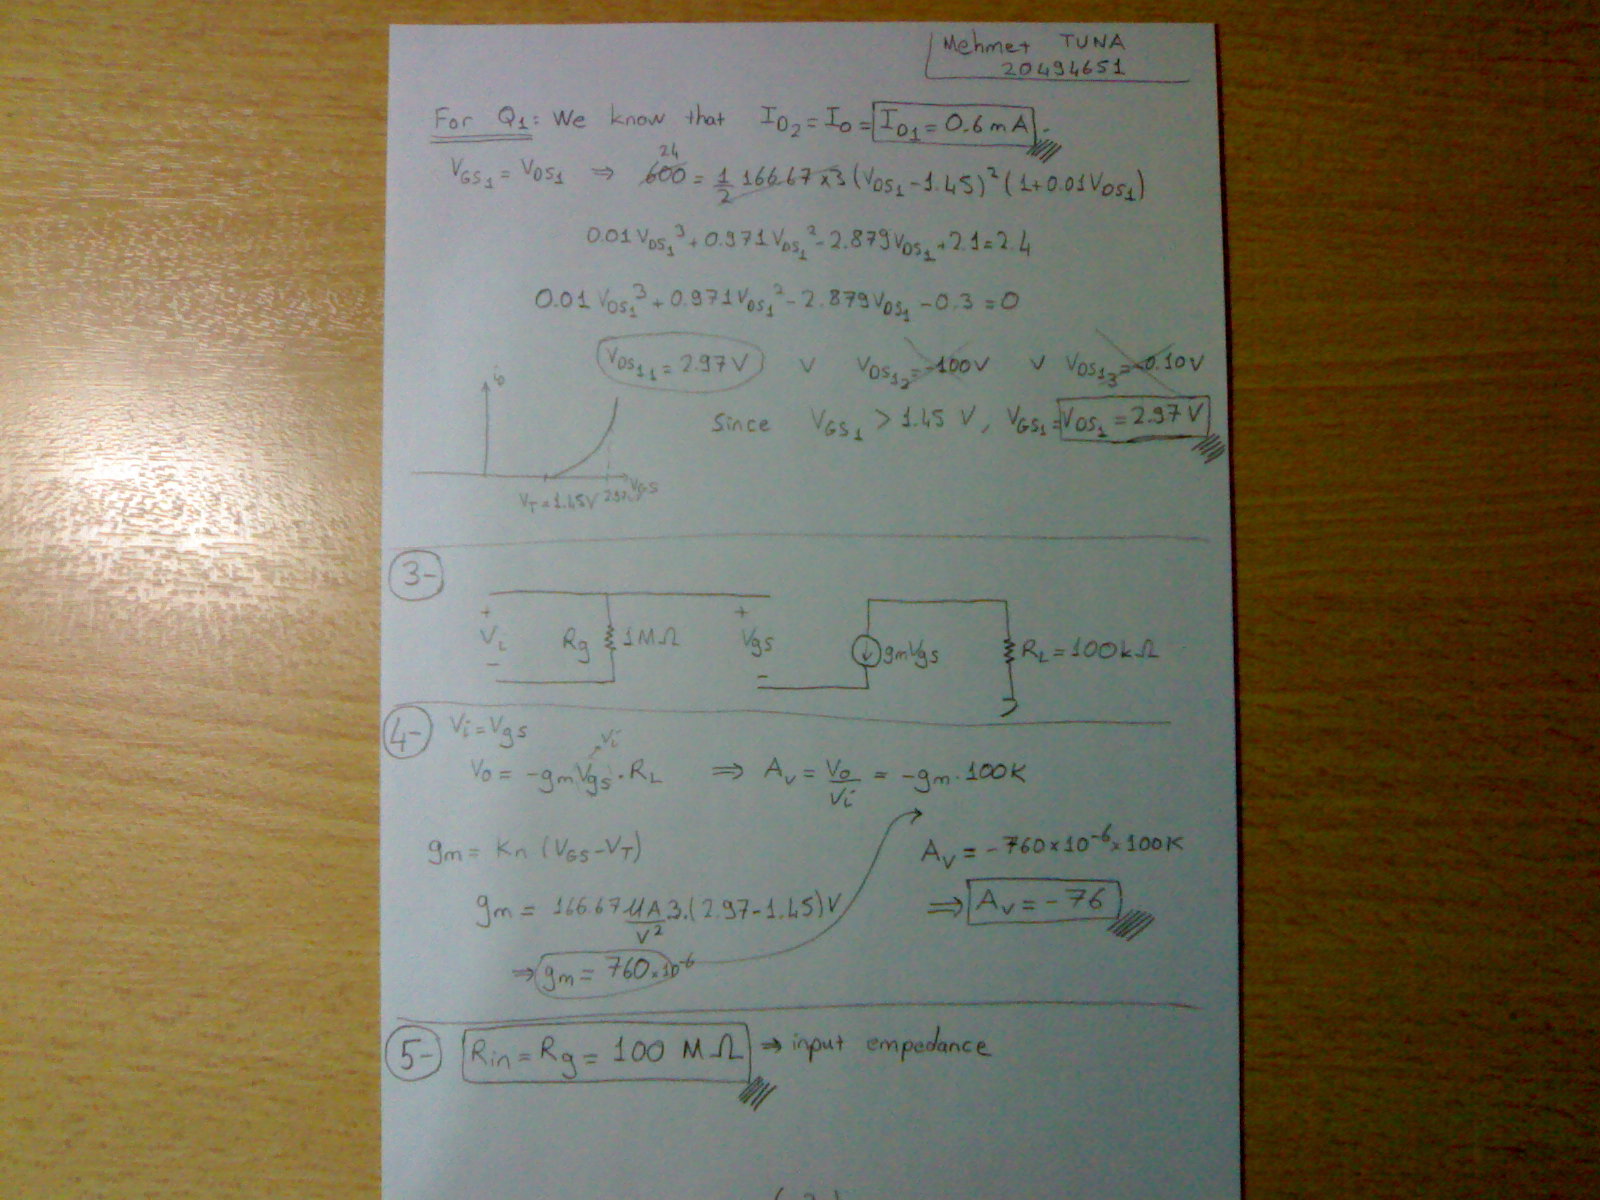 Mehmet TUNA
20494651
For Q1: We know that I_D2 = I_O = I_D1 = 0.6 mA.
24
V_GS1 = V_DS1 ⇒ 600 = 1/2 166.67 x 3 (V_DS1 - 1.45)² (1 + 0.01 V_DS1)
0.01 V_DS1³ + 0.971 V_DS1² - 2.879 V_DS1 + 2.1 = 2.4
0.01 V_DS1³ + 0.971 V_DS1² - 2.879 V_DS1 - 0.3 = 0
V_DS1_1 = 2.97 V v V_DS1_2 = -100 V v V_DS1_3 = -0.10 V
i_D
Since V_GS1 > 1.45 V, V_GS1 = V_DS1 = 2.97 V
V_GS
V_T = 1.45V 2.97
3-
+ V_i - Rg 1MΩ + Vgs - gmVgs R_L = 100kΩ
4- Vi = Vgs
Vi
Vo = -gmVgs . R_L ⇒ Av = Vo/Vi = -gm . 100K
gm = Kn (V_GS - V_T)
A_V = -760 x 10^-6 x 100K
gm = 166.67 μA/V² 3.(2.97 - 1.45) V
⇒ A_V = -76
⇒ gm = 760 x 10^-6
5- Rin = Rg = 100 MΩ → input empedance